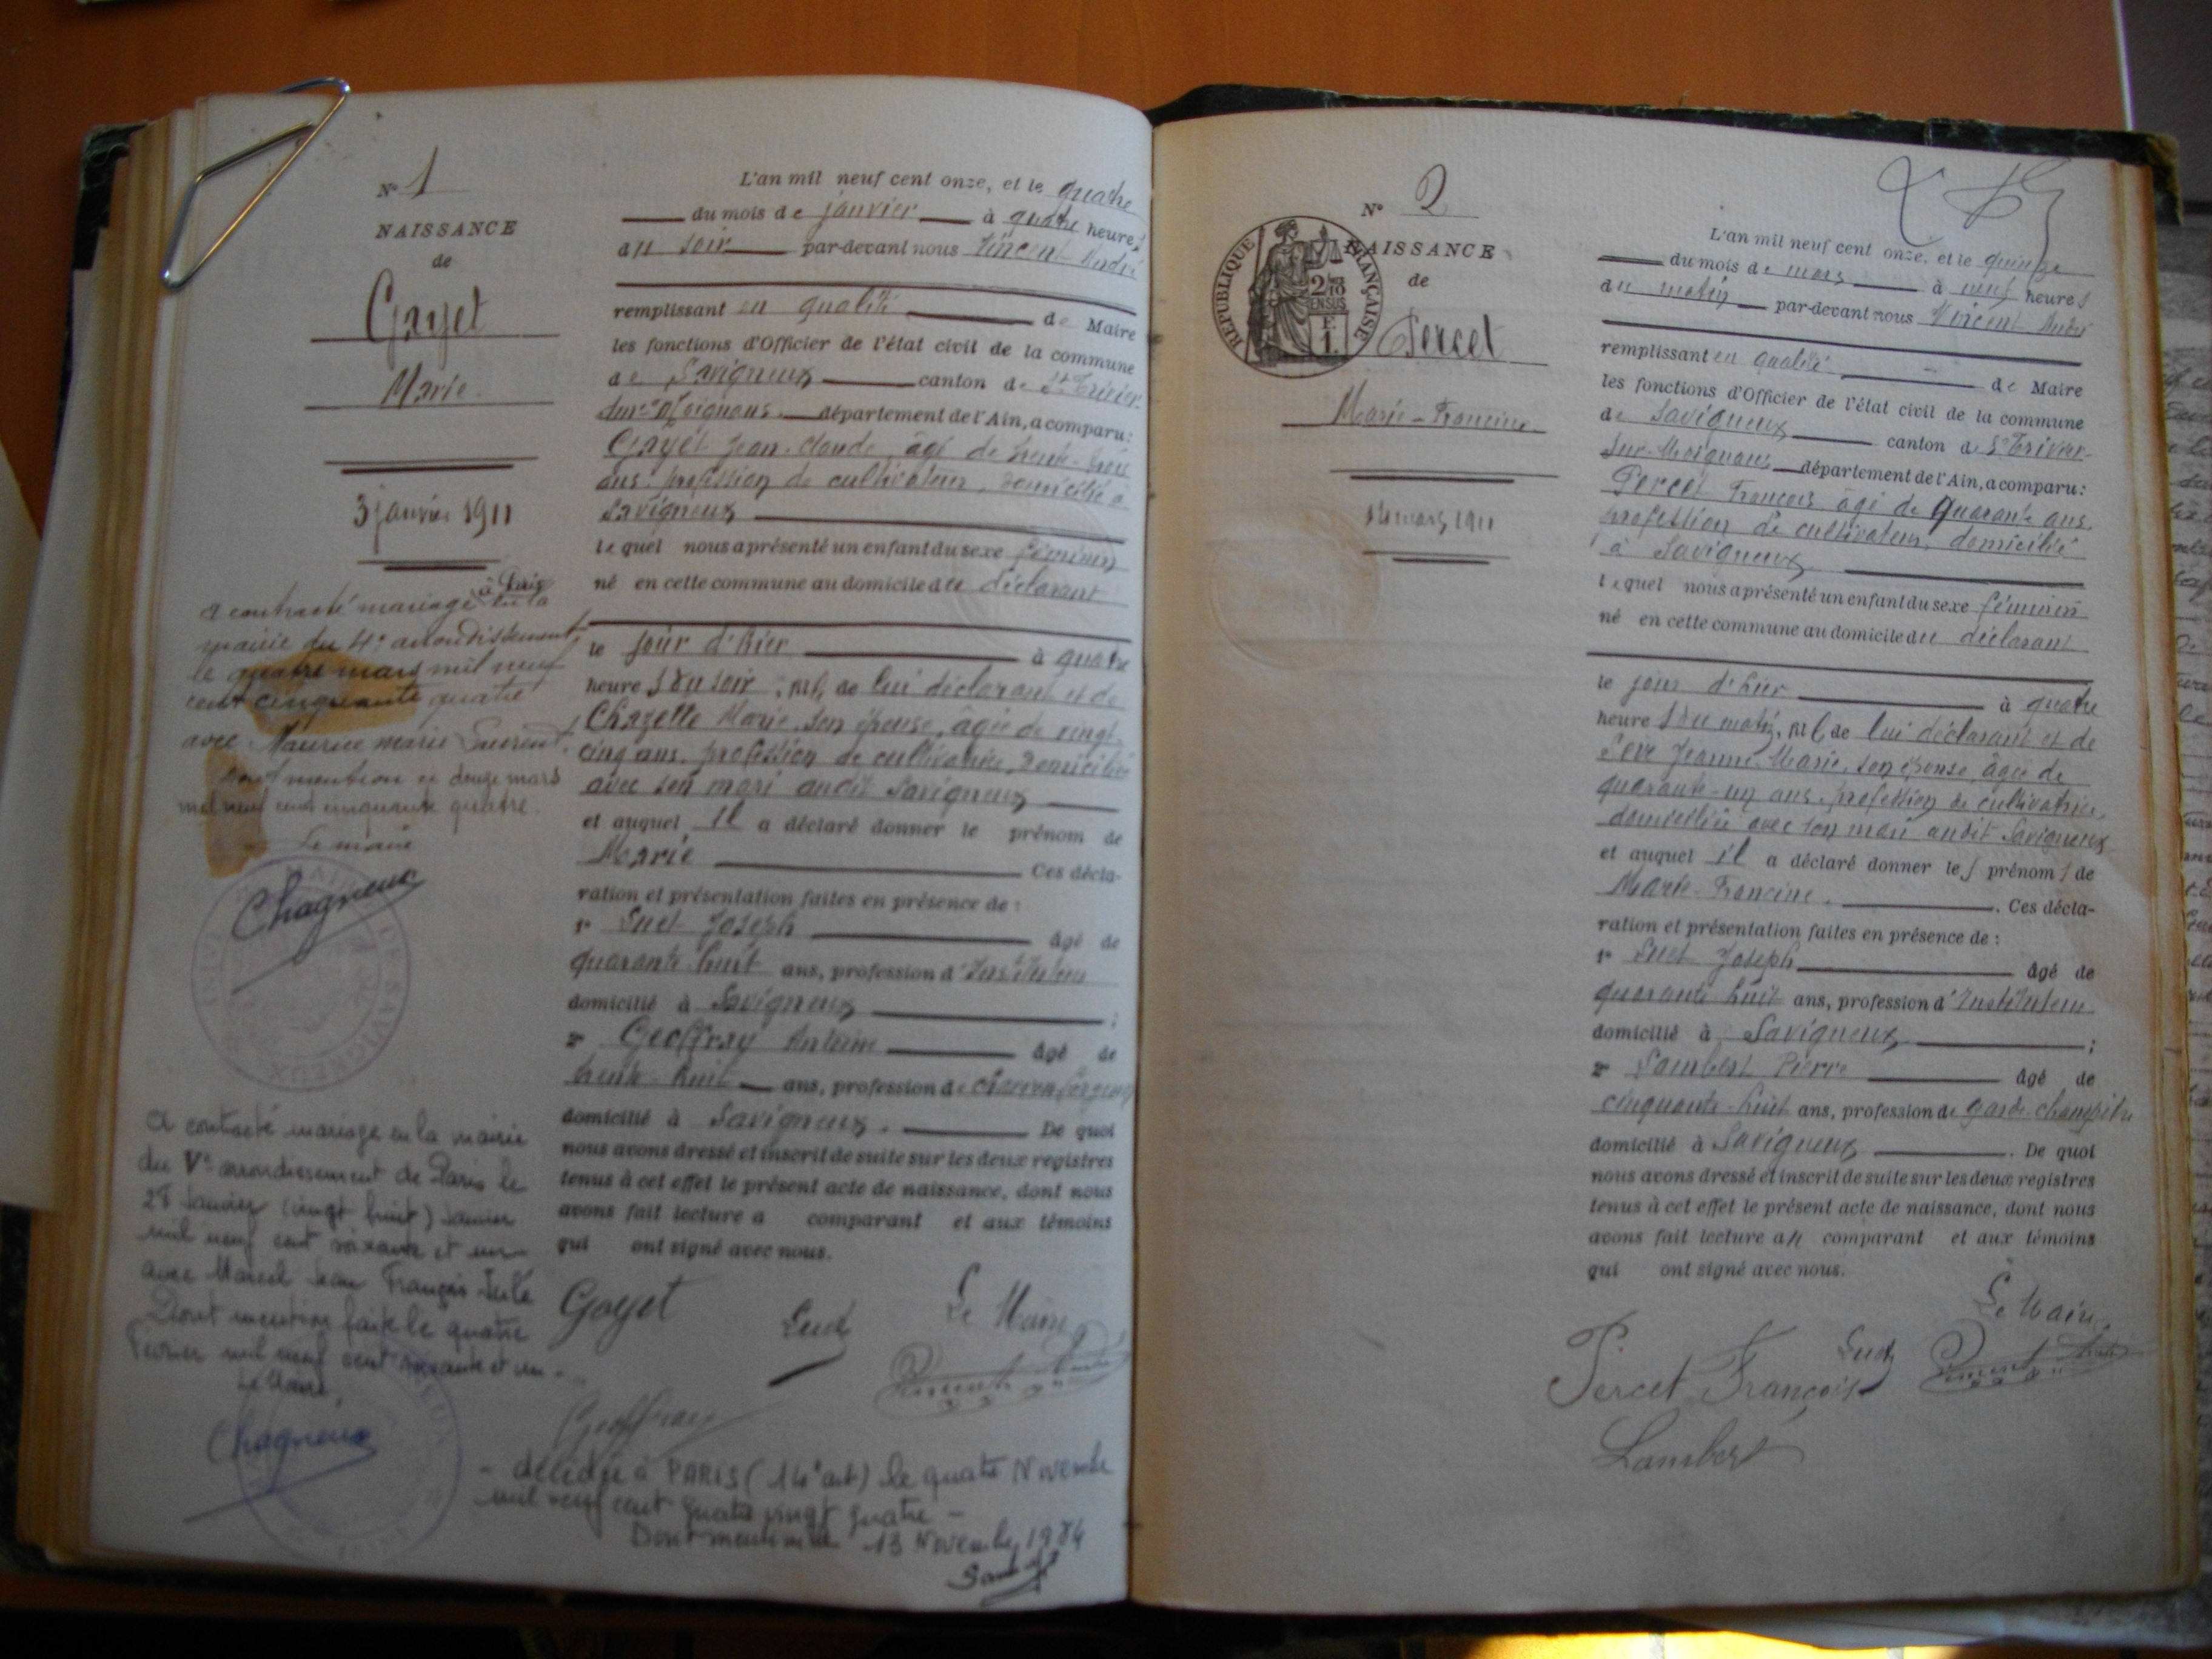 N° 1
NAISSANCE
de
Gayet
Marie
3 janvier 1911
a contracté mariage à Paris en la
mairie du 4e arrondissement,
le quatre mars mil neuf
cent cinquante quatre
avec Maurice Marie
Dont mention ce douze mars
mil neuf cent cinquante quatre.
Le maire
Chagneux
MAIRIE DE SAVIGNEUX
A contracté mariage en la mairie
du Ve arrondissement de Paris le
28 Janvier (vingt huit) Janvier
mil neuf cent soixante et un
avec Marcel Jean François
Dont mention faite le quatre
Février mil neuf cent soixante et un.
Le Maire,
Chagneux
L'an mil neuf cent onze, et le quatre
du mois de janvier à quatre heures
du soir par-devant nous Vincent André
remplissant en qualité de Maire
les fonctions d'Officier de l'état civil de la commune
de Savigneux canton de St Trivier-
sur-Moignans département de l'Ain, a comparu:
Gayet Jean-Claude, âgé de trente-trois
ans, profession de cultivateur, domicilié à
Savigneux
lequel nous a présenté un enfant du sexe féminin
né en cette commune au domicile du déclarant
le jour d'hier à quatre
heures du soir, né de lui déclarant et de
Chazelle Marie, son épouse, âgée de vingt-
cinq ans, profession de cultivatrice, domiciliée
avec son mari audit Savigneux
et auquel il a déclaré donner le prénom de
Marie Ces décla-
ration et présentation faites en présence de :
1° Suet Joseph âgé de
quarante-huit ans, profession d'Instituteur
domicilié à Savigneux ;
2° Geoffray Antoine âgé de
trente-huit ans, profession de
domicilié à Savigneux. De quoi
nous avons dressé et inscrit de suite sur les deux registres
tenus à cet effet le présent acte de naissance, dont nous
avons fait lecture a comparant et aux témoins
qui ont signé avec nous.
Gayet Suet Le Maire
Vincent André
Geoffray
- décédée à PARIS (14e art) le quatre Novembre
mil neuf cent quatre vingt quatre -
Dont mention le 13 Novembre 1984
N° 2
RÉPUBLIQUE FRANÇAISE
NAISSANCE
de
Percet
Marie-Francine
14 mars 1911
L'an mil neuf cent onze, et le quinze
du mois de mars à neuf heures
du matin par-devant nous Vincent André
remplissant en qualité de Maire
les fonctions d'Officier de l'état civil de la commune
de Savigneux canton de St Trivier-
sur-Moignans département de l'Ain, a comparu:
Percet François, âgé de Quarante ans,
profession de cultivateur, domicilié
à Savigneux
lequel nous a présenté un enfant du sexe féminin
né en cette commune au domicile du déclarant
le jour d'hier à quatre
heures du matin, né de lui déclarant et de
Sève Jeanne-Marie, son épouse, âgée de
quarante-un ans, profession de cultivatrice,
domiciliée avec son mari audit Savigneux
et auquel il a déclaré donner les prénoms de
Marie-Francine. Ces décla-
ration et présentation faites en présence de :
1° Suet Joseph âgé de
quarante huit ans, profession d'Instituteur
domicilié à Savigneux ;
2° Lambert Pierre âgé de
cinquante-huit ans, profession de garde-champêtre
domicilié à Savigneux. De quoi
nous avons dressé et inscrit de suite sur les deux registres
tenus à cet effet le présent acte de naissance, dont nous
avons fait lecture au comparant et aux témoins
qui ont signé avec nous.
Le Maire,
Percet François Suet Vincent André
Lambert